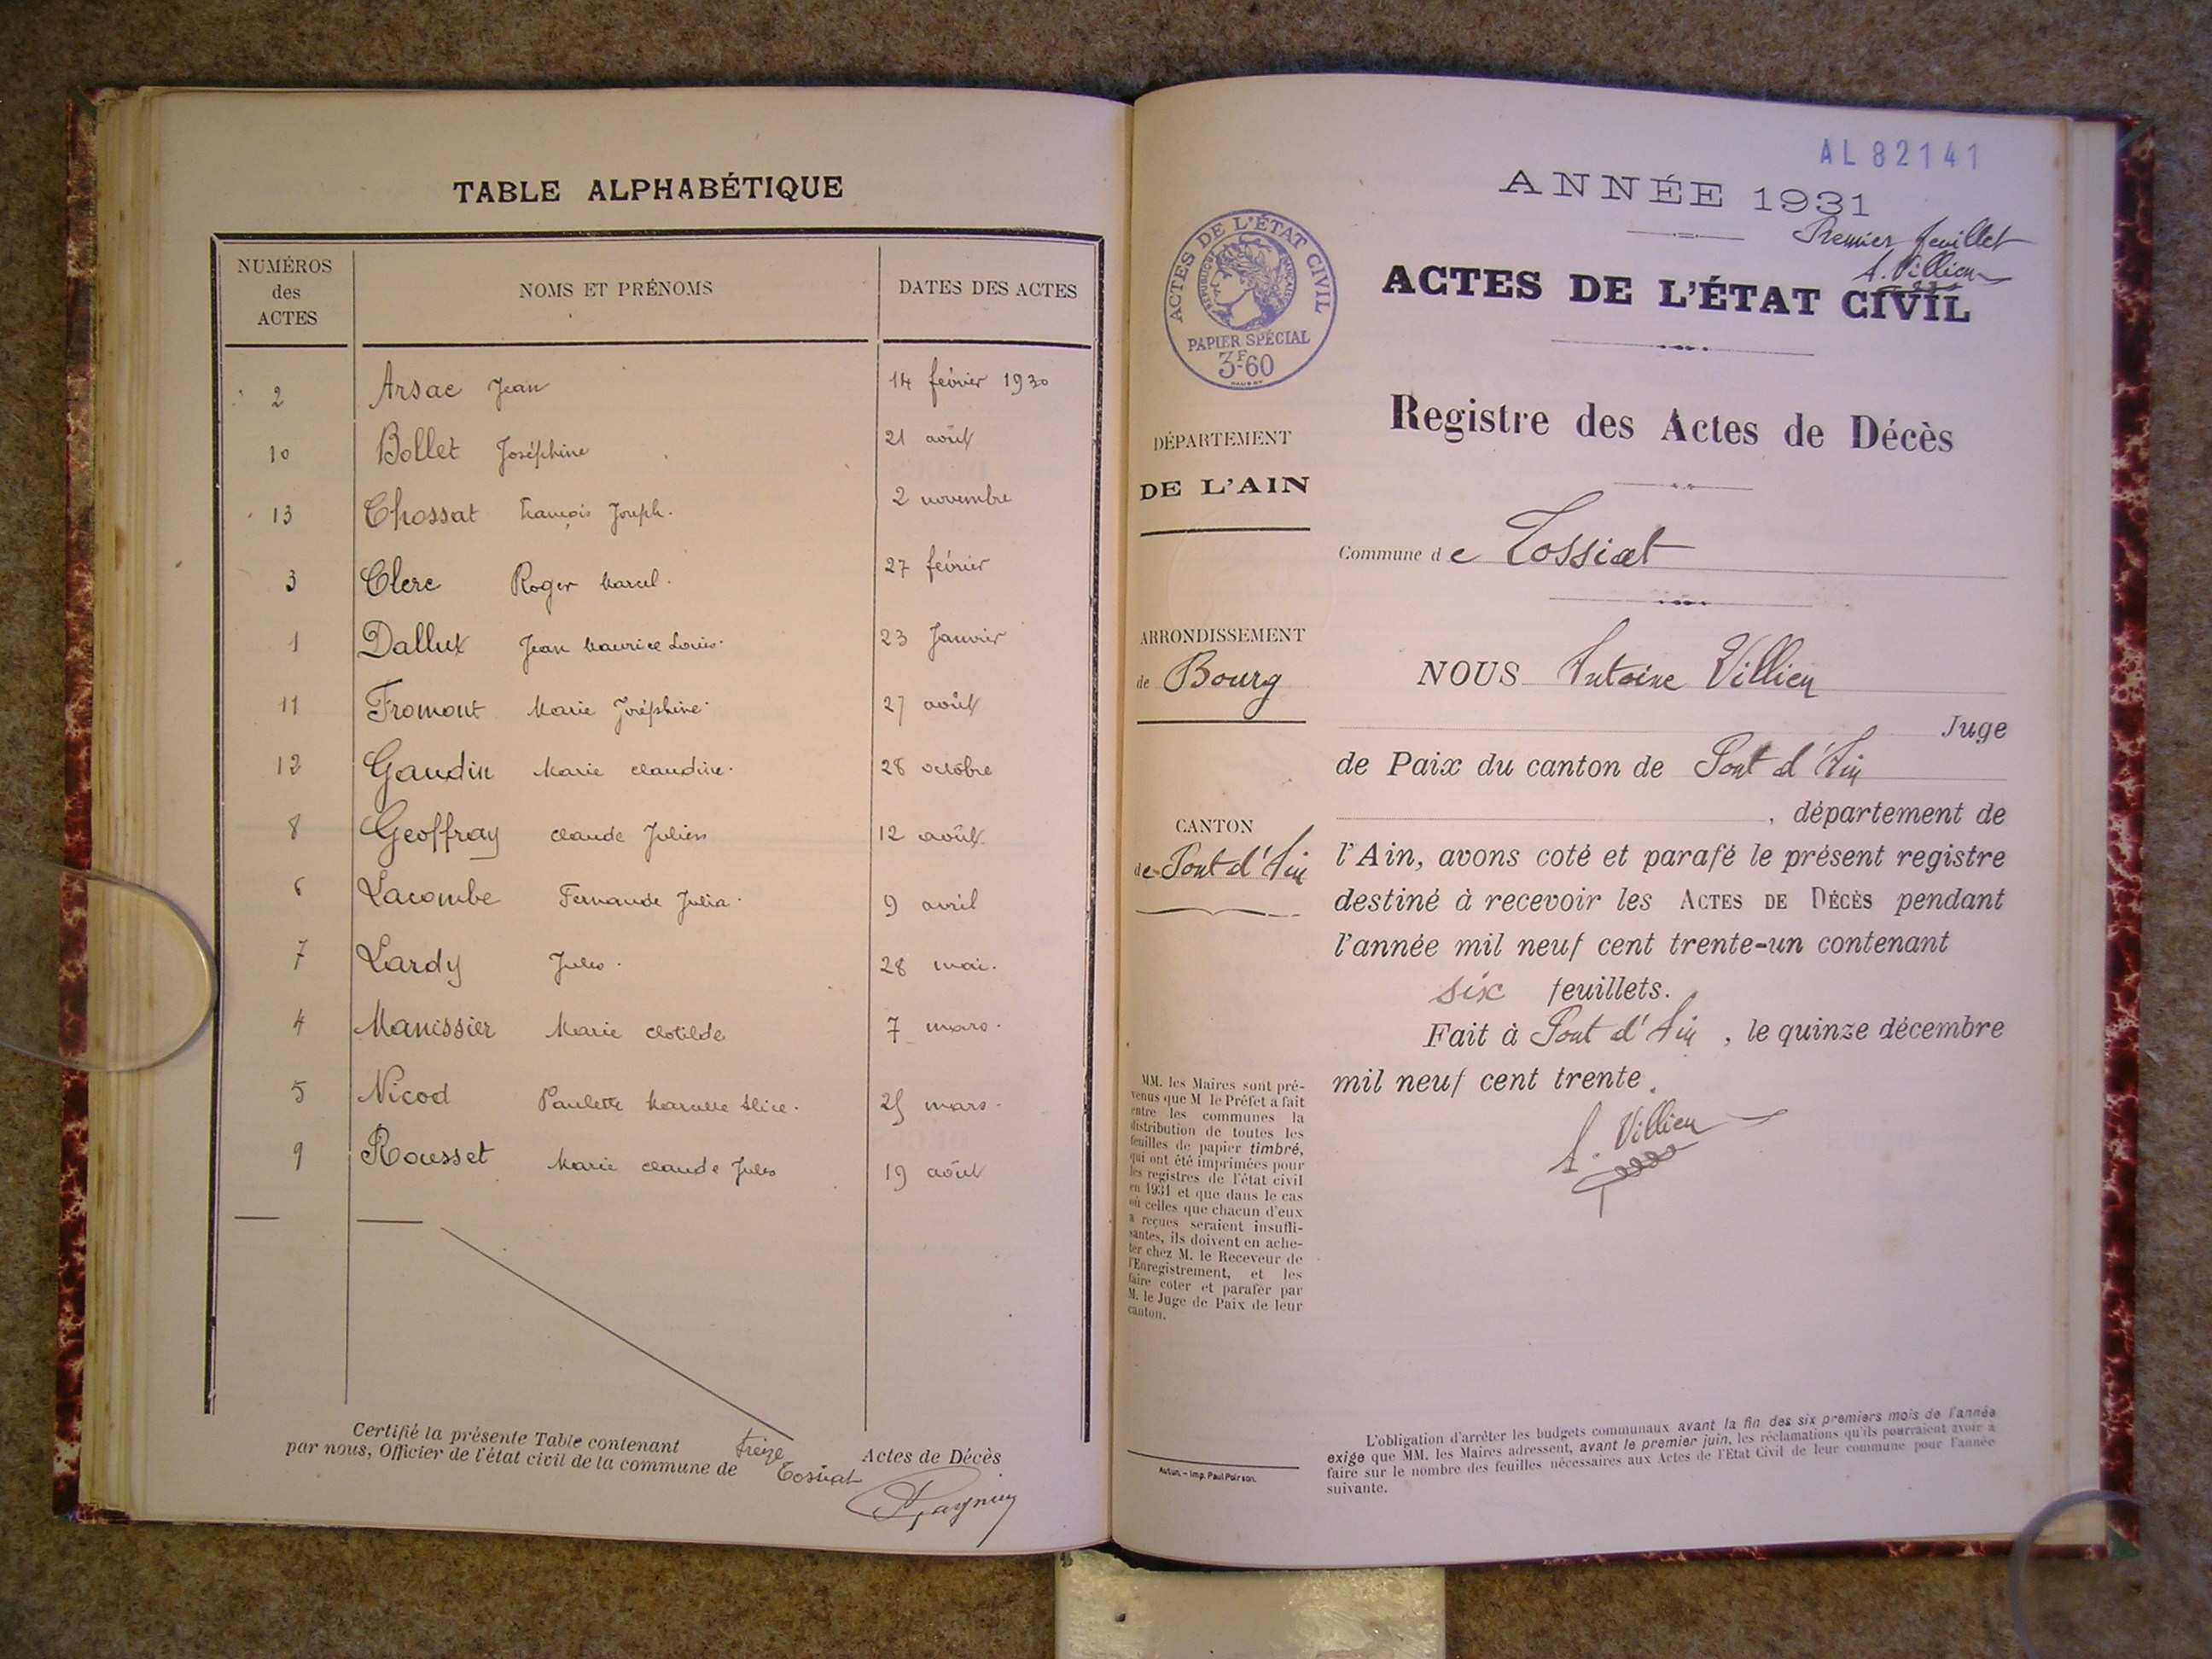 TABLE ALPHABÉTIQUE
NUMÉROS
des
ACTES
NOMS ET PRÉNOMS
DATES DES ACTES
2 Arsac Jean 14 février 1930
10 Bollet Joséphine 21 août
13 Chossat François Joseph. 2 novembre
3 Clerc Roger Marcel. 27 février
1 Dallux Jean Maurice Louis. 23 Janvier
11 Fromont Marie Joséphine. 27 août
12 Gaudin Marie claudine. 28 octobre
8 Geoffray claude Julien 12 août
6 Lacombe Fernande Julia. 9 avril
7 Lardy Jules. 28 mai.
4 Manissier Marie clotilde 7 mars.
5 Nicod Paulette Marcelle Alice. 25 mars.
9 Rousset Marie claude Jules 19 août
Certifié la présente Table contenant treize Actes de Décès
par nous, Officier de l'état civil de la commune de Tossiat
AL82141
ANNÉE 1931
Premier feuillet
A. Villien
ACTES DE L'ÉTAT CIVIL
ACTES DE L'ÉTAT CIVIL
RÉPUBLIQUE FRANÇAISE
PAPIER SPÉCIAL
3F60
Registre des Actes de Décès
DÉPARTEMENT
DE L'AIN
Commune de Tossiat
ARRONDISSEMENT
de Bourg
NOUS Antoine Villien
Juge
de Paix du canton de Pont d'Ain
, département de
CANTON
de Pont d'Ain
l'Ain, avons coté et parafé le présent registre
destiné à recevoir les ACTES DE DÉCÈS pendant
l'année mil neuf cent trente-un contenant
six feuillets.
Fait à Pont d'Ain, le quinze décembre
mil neuf cent trente.
A. Villien
MM. les Maires sont pré-
venus que M le Préfet a fait
entre les communes la
distribution de toutes les
feuilles de papier timbré,
qui ont été imprimées pour
les registres de l'état civil
en 1931 et que dans le cas
où celles que chacun d'eux
a reçues seraient insuffi-
santes, ils doivent en ache-
ter chez M. le Receveur de
l'Enregistrement, et les
faire coter et parafer par
M. le Juge de Paix de leur
canton.
Autun. – Imp. Paul Poirson.
L'obligation d'arrêter les budgets communaux avant la fin des six premiers mois de l'année
exige que MM. les Maires adressent, avant le premier juin, les réclamations qu'ils pourraient avoir à
faire sur le nombre des feuilles nécessaires aux Actes de l'Etat Civil de leur commune pour l'année
suivante.